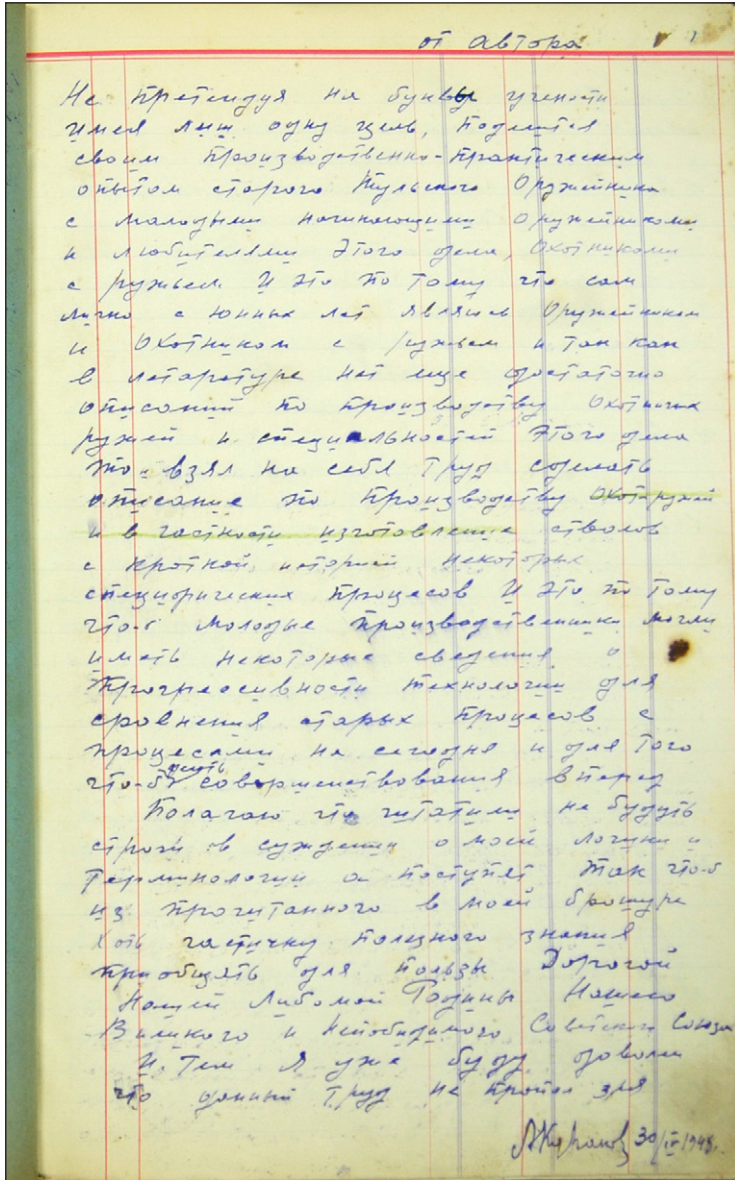 от автора
Не претендуя на буквы учености
имея лиш одну цель, поделится
своим производственно-практическим
опытом старого Тульского Оружейника
с молодыми начинающими оружейниками
и любителями этого дела, охотниками
с ружьем. И это по тому что сам
лично с юнных лет являясь Оружейником
и Охотником с ружьем и так как
в летаратуре нет еще достаточно
описаний по производству Охотничих
ружей и специальностей этого дела
то взял на себя труд сделать
описание по производству охот-ружей
и в частности изготовление стволов
с кроткой историей некоторых
специфических процесов И это по тому
что-б молодые производственники могли
иметь некоторые сведения о
Прогрессивности технологии для
сровнения старых процесов с
процесами на сегодня и для того
что-б совершенствования вперед
Полагаю что читатили не будуть
строги в суждении о моей логики и
терминологии а поступят так что-б
из прочитанного в моей брошуре
хоть частичку полезного знания
приобщять для пользы Дорогой
Нашей Любомой Родины Нашего
Виликого и Непобидимого Советского Союза
И. Тем я уже буду доволен
что данный труд не пропал зря
30/IV 1948.